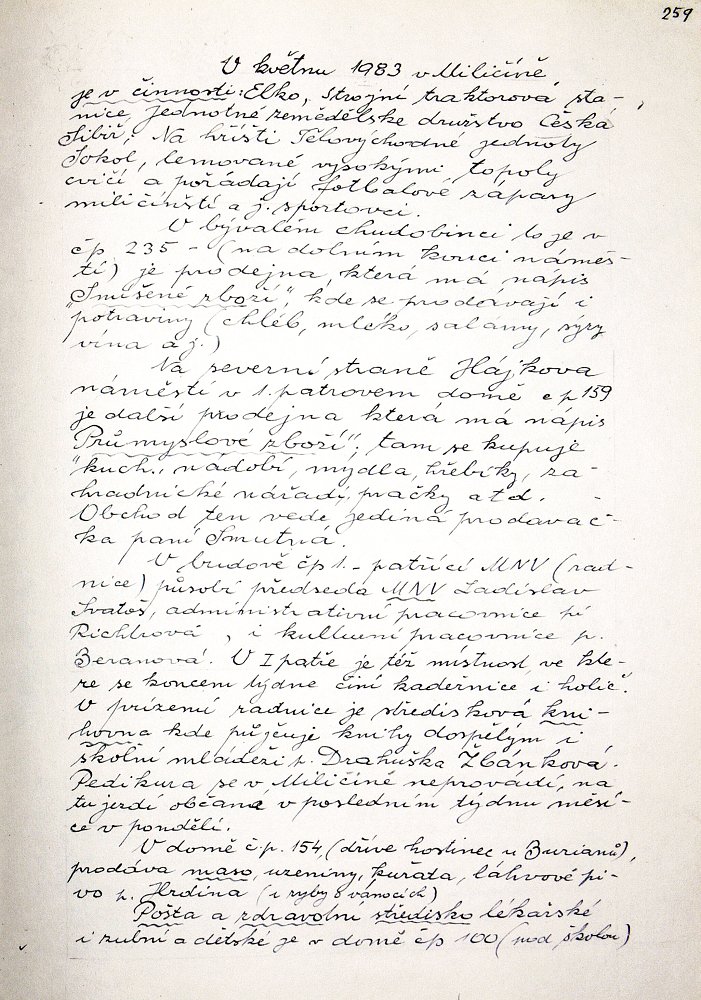 259
V květnu 1983 v Miličíně
je v činnosti: Elko, Strojní traktorová sta-
nice, Jednotné zemědělské družstvo Česká
Sibiř. Na hřišti Tělovýchodné jednoty
Sokol, lemované vysokými topoly
cvičí a pořádají fotbalové zápasy
miličínští a j. sportovci.
V bývalém chudobinci to je v
čp. 235 - (na dolním konci náměs-
tí) je prodejna, která má nápis
"Smíšené zboží", kde se prodávají i
potraviny (chléb, mléko, salámy, sýry
vína a j.)
Na severní straně Hájkova
náměstí v 1. patrovem domě čp 159
je další prodejna která má nápis
"Průmyslové zboží"; tam se kupuje
kuch. nádobí, mýdla, hřebíky, za-
hradnické nářadí, pračky atd.
Obchod ten vede jediná prodavač-
ka paní Smutná.
V budově čp 1. - patřící MNV (rad-
nice) působí předseda MNV Ladislav
Svatoš, administrativní pracovnice pí
Richtrová, i kulturní pracovnice p.
Beranová. V I patře je též místnost, ve kte-
re se koncem týdne činí kadeřnice i holič.
V prízemí radnice je středisková kni-
hovna kde půjčuje knihy dospělým i
školní mládeži p. Drahuška Žbánková.
Pedikura se v Miličíně neprovádí, na
tu jezdí občané v posledním týdnu měsí-
ce v pondělí.
V domě č.p. 154, (dříve hostinec u Burianů),
prodáva maso, uzeniny, kuřata, láhvové pi-
vo p. Hrdina (i ryby o vánocích)
Pošta a zdravotní středisko lékařské
i zubní a dětské je v domě čp 100 (nad školou)